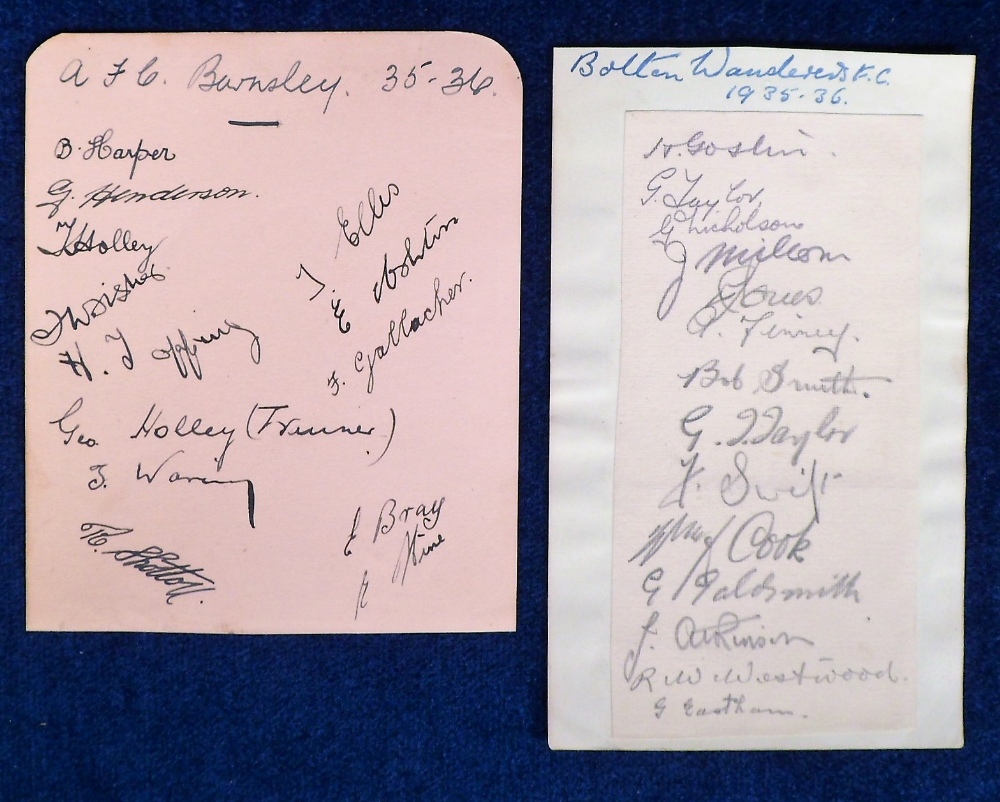 A F C. Barnsley. 35-36.
B. Harper
G. Henderson.
T Holley
H. Topping
Geo Holley (Trainer)
F. Waring
T Ellis
E Ashton
F. Gallacher.
E Bray
Hine
Bolton Wanderers F.C.
1935-36.
H. Goslin.
G. Taylor
G Nicholson
J Milsom
Jones
A. Finney.
Bob Smith.
G. T. Taylor
F. Swift
Cook
G Goldsmith
J. Atkinson
R W Westwood.
G Eastham.